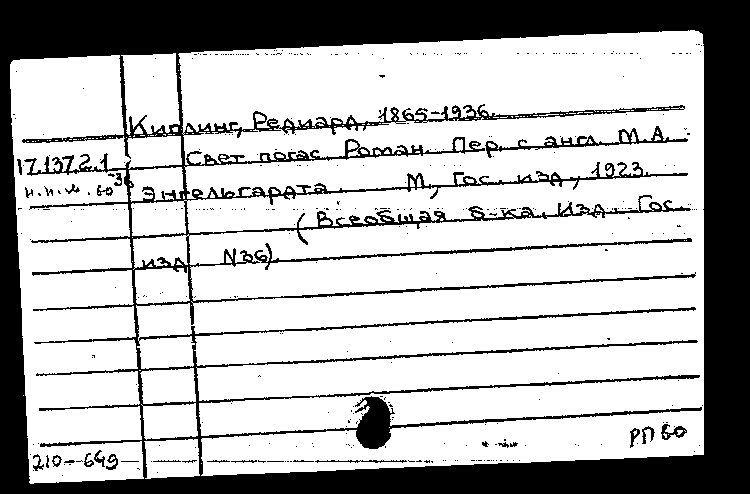 Киплинг, Редиард, 1865-1936.
17.137.2.1 Свет погас. Роман. Пер. с англ. М.А.
36 Энгельгардта. М., Гос. изд., 1923.
(Всеобщая б-ка. Изд. Гос.
изд N36).
210-649
РП 60